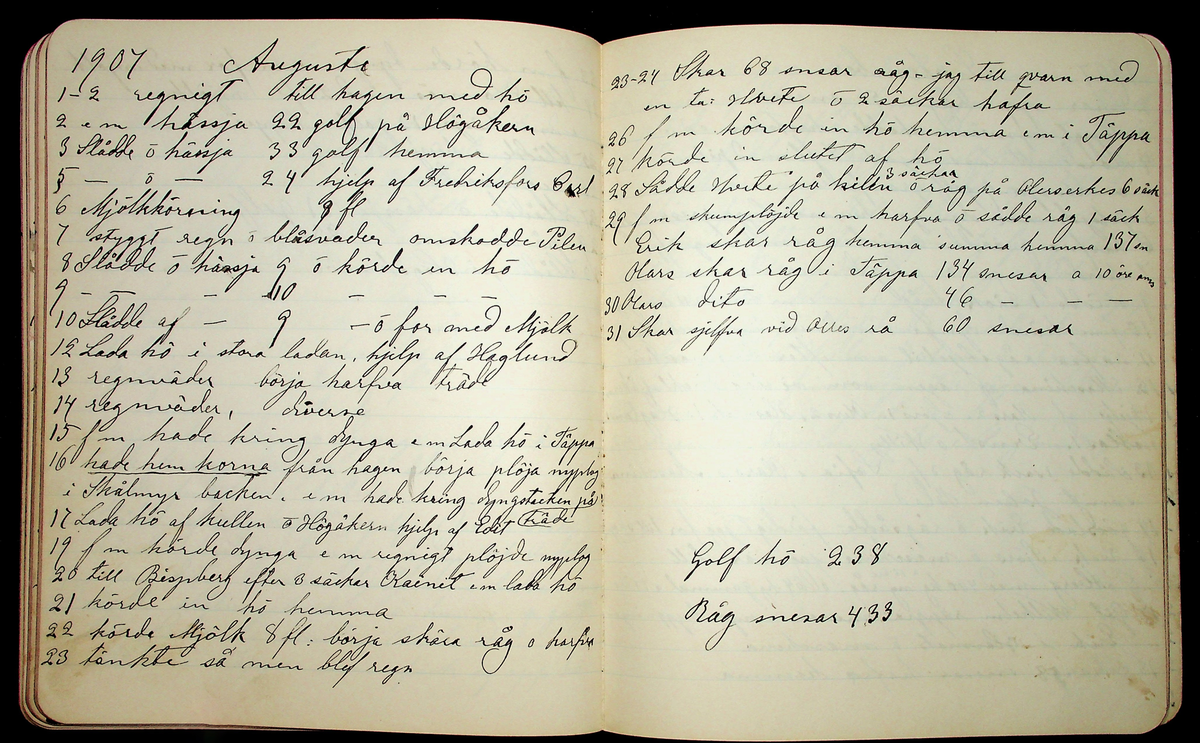 1907 Augusti
1-2 regnigt till hagen med hö
2 e m hässja 22 golf på Högåkern
3 Slådde o hässja 33 golf hemma
5 — o — 24 hjelp af Fredriksfors Carl
6 Mjölkkörning 9 fl
7 styggt regn o blåsväder omskodde Pilen
8 Slådde o hässja 9 o körde en hö
9 — — — 10 — — —
10 Slådde af — 9 — o for med Mjölk
12 Lada hö i stora ladan, hjelp af Haglund
13 regnväder börja harfva träde
14 regnväder, diverse
15 f m hade kring dynga e m Lada hö i Täppa
16 hade hem korna från hagen börja plöja myplog
i Skålmyr backen. e m hade kring dyngstacken på
17 Lada hö af kullen o Högåkern hjelp af Edit träde
19 f m körde dynga e m regnigt plöjde myplog
20 till Bispberg efter 3 säckar Kainit em lada hö
21 körde in hö hemma
22 körde Mjölk 8 fl: börja skära råg o harfva
23 tänkte så men blef regn
23-24 Skar 68 snesar råg - jag till qvarn med
en ta: Hvete o 2 säckar hafra
26 f m körde in hö hemma em i Täppa
27 körde in slutet af hö
28 Sådde Hvete på kilen 3 säckar o råg på Olerserkes 6 säck
29 f m skumplöjde e m harfva o sådde råg 1 säck
Erik skar råg hemma summa hemma 137 sn
Olars skar råg i Täppa 134 snesar a 10 öre
30 Olars dito 46 — — —
31 Skar sjelfva vid Olles rå 60 snesar
Golf hö 238
Råg snesar 433